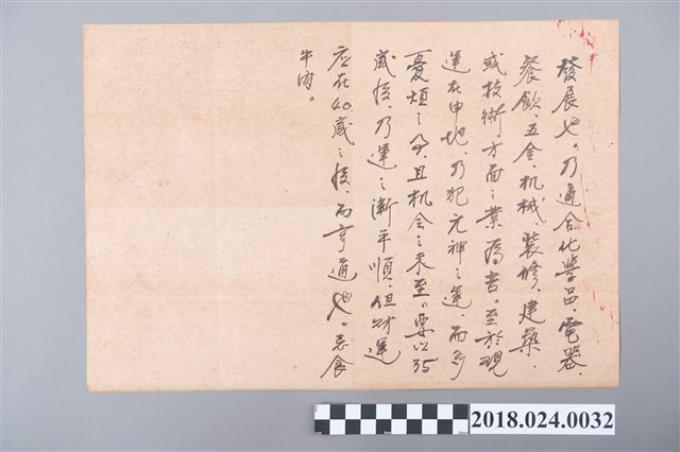 發展也。乃適合化學品、電器、
餐飲、五金、机械、裝修、建築、
或技術方面之業為吉。至於現
運在申地、乃犯元神之運、而多
憂煩之命、且机会之未至。要以35
歲後、乃運之漸平順、但財運
应在40歲之後、而亨通也。忌食
牛肉。
2018.024.0032